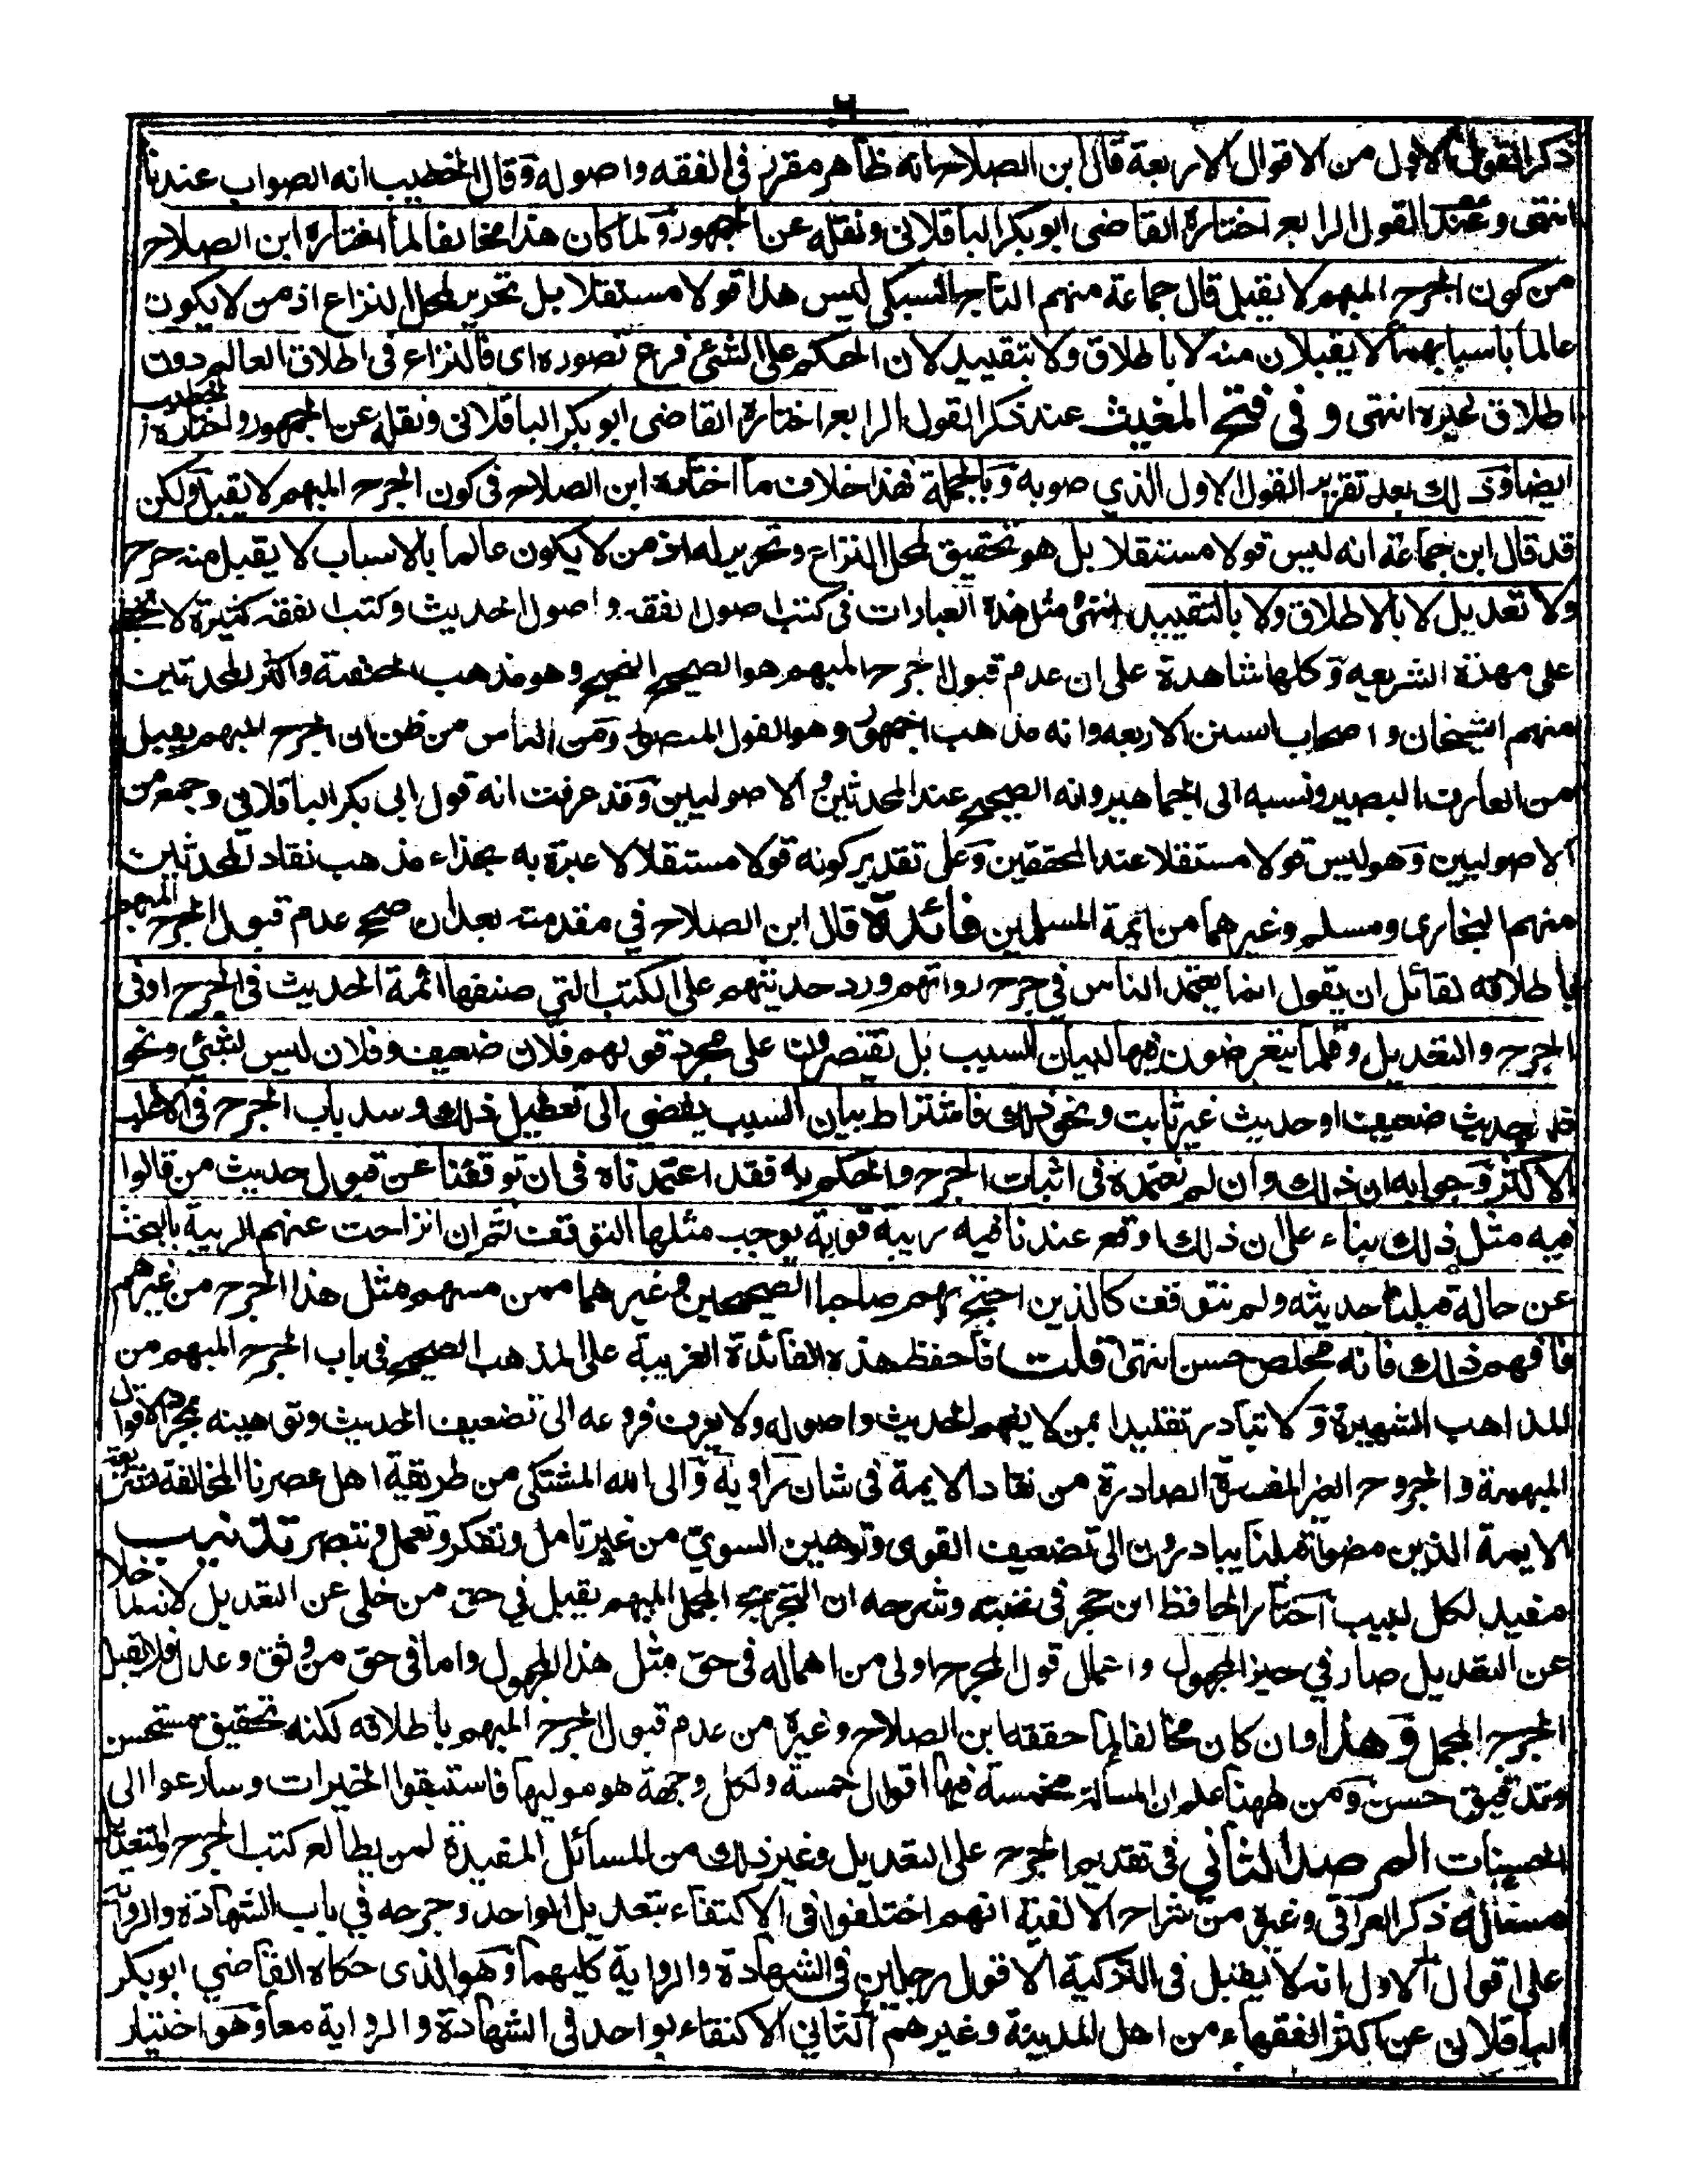 ذكر القول الاول من الاقوال الاربعة قال ابن الصلاح انه ظاهر مقرر في الفقه واصوله وقال الخطيب انه الصواب عندنا
انتهى وعند القول الرابع اختاره القاضى ابو بكر الباقلانى ونقله عن الجمهور ولما كان هذا مخالفا لما اختاره ابن الصلاح
من كون الجرح المبهم لا يقبل قال جماعة منهم التاج السبكى ليس هذا قولا مستقلا بل تحرير لمحل النزاع اذ من لا يكون
عالما باسبابهما لا يقبلان منه لا باطلاق ولا بتقييد لان الحكم على الشئ فرع تصوره اى فالنزاع فى اطلاق العالم دون
اطلاق غيره انتهى وفى فتح المغيث عند ذكر القول الرابع اختاره القاضى ابو بكر الباقلانى ونقله عن الجمهور واختاره الخطيب
ايضا وذلك بعد تقرير القول الاول الذي صوبه وبالجملة فهذا خلاف ما اختاره ابن الصلاح فى كون الجرح المبهم لا يقبل ولكن
قد قال ابن جماعة انه ليس قولا مستقلا بل هو تحقيق لمحل النزاع وتحرير له اذ من لا يكون عالما بالاسباب لا يقبل منه جرح
ولا تعديل لا بالاطلاق ولا بالتقييد انتهى مثل هذه العبارات فى كتب اصول الفقه واصول الحديث وكتب الفقه كثيرة لا تخفى
على مهرة الشريعه وكلها شاهدة على ان عدم قبول الجرح المبهم هو الصحيح النجيح وهو مذهب الحنفية واكثر المحدثين
منهم الشيخان واصحاب السنن الاربعه وانه مذهب الجمهور وهو القول المنصور ومن الناس من ظن ان الجرح المبهم يقبل
من العارف البصير ونسبه الى الجماهير وانه الصحيح عند المحدثين والاصوليين وقد عرفت انه قول ابى بكر الباقلانى وجمع من
الاصوليين وهو ليس قولا مستقلا عند المحققين وعلى تقدير كونه قولا مستقلا لا عبرة به بحذاء مذهب نقاد المحدثين
منهم البخارى ومسلم وغيرهما من ايمة المسلمين فائدة قال ابن الصلاح في مقدمته بعد ان صحح عدم قبول الجرح المبهم
باطلاقه لقائل ان يقول انما يعتمد الناس في جرح رواتهم ورد حديثهم على الكتب التي صنفها ائمة الحديث فى الجرح او فى
الجرح والتعديل وقلما يتعرضون فيها لبيان السبب بل يقتصرون على مجرد قولهم فلان ضعيف وفلان ليس بشئ ونحو
حديث ضعيف او حديث غير ثابت ونحو ذلك فاشتراط بيان السبب يفضى الى تعطيل ذلك وسد باب الجرح فى الاغلب
الاكثر وجوابه ان ذلك وان لم نعتمده فى اثبات الجرح والحكم به فقد اعتمدناه فى ان توقفنا عن قبول حديث من قالوا
فيه مثل ذلك بناء على ان ذلك اوقع عندنا فيه ريبة قوية يوجب مثلها التوقف ثم ان انزاحت عنهم الريبة بالبحث
عن حالة قبلنا حديثه ولم نتوقف كالذين احتج بهم صاحبا الصحيحين وغيرهما ممن مسهم مثل هذا الجرح من غيرهم
فافهم ذلك فانه مخلص حسن انتهى قلت فاحفظ هذه الفائدة الغريبة على المذهب الصحيح فى باب الجرح المبهم من
المذاهب الشهيرة ولا تبادر تقليدا بمن لا يفهم الحديث واصوله ولا يعرف فروعه الى تضعيف الحديث وتوهينه بمجرد الاقوال
المبهمة والجروح الغير المفسرة الصادرة من نقاد الايمة فى شان راويه والى الله المشتكى من طريقة اهل عصرنا المخالفة لشريعة
الايمة الذين مضوا قبلنا يبادرون الى تضعيف القوى وتوهين السوي من غير تامل وتفكر وتعمل وتبصر تذنيب
مفيد لكل لبيب اختار الحافظ ابن حجر فى نخبته وشرحه ان التجريح المجمل المبهم يقبل في حق من خلى عن التعديل لانه لما خلا
عن التعديل صار في حيز المجهول واعمال قول المجرح اولى من اهماله فى حق مثل هذا المجهول واما فى حق من وثق وعدل فلا يقبل
الجرح المجمل وهذا وان كان مخالفا لما حققه ابن الصلاح وغيره من عدم قبول الجرح المبهم باطلاقه لكنه تحقيق مستحسن
وتدقيق حسن ومن ههنا علم ان المسألة مخمسة فيها اقوال خمسة ولكل وجهة هو موليها فاستبقوا الخيرات وسارعوا الى
الحسنات المرصد الثاني فى تقديم الجرح على التعديل وغير ذلك من المسائل المفيدة لمن يطالع كتب الجرح والتعديل
مسئالة ذكر العراقى وغيره من شراح الالفية انهم اختلفوا فى الاكتفاء بتعديل الواحد وجرحه في باب الشهادة والرواية
على اقوال الاول انه لا يقبل فى التزكية الا قول رجلين فى الشهادة والرواية كليهما وهو الذى حكاه القاضي ابو بكر
الباقلانى عن اكثر الفقهاء من اهل المدينة وغيرهم الثاني الاكتفاء بواحد فى الشهادة والرواية معا وهو اختيار